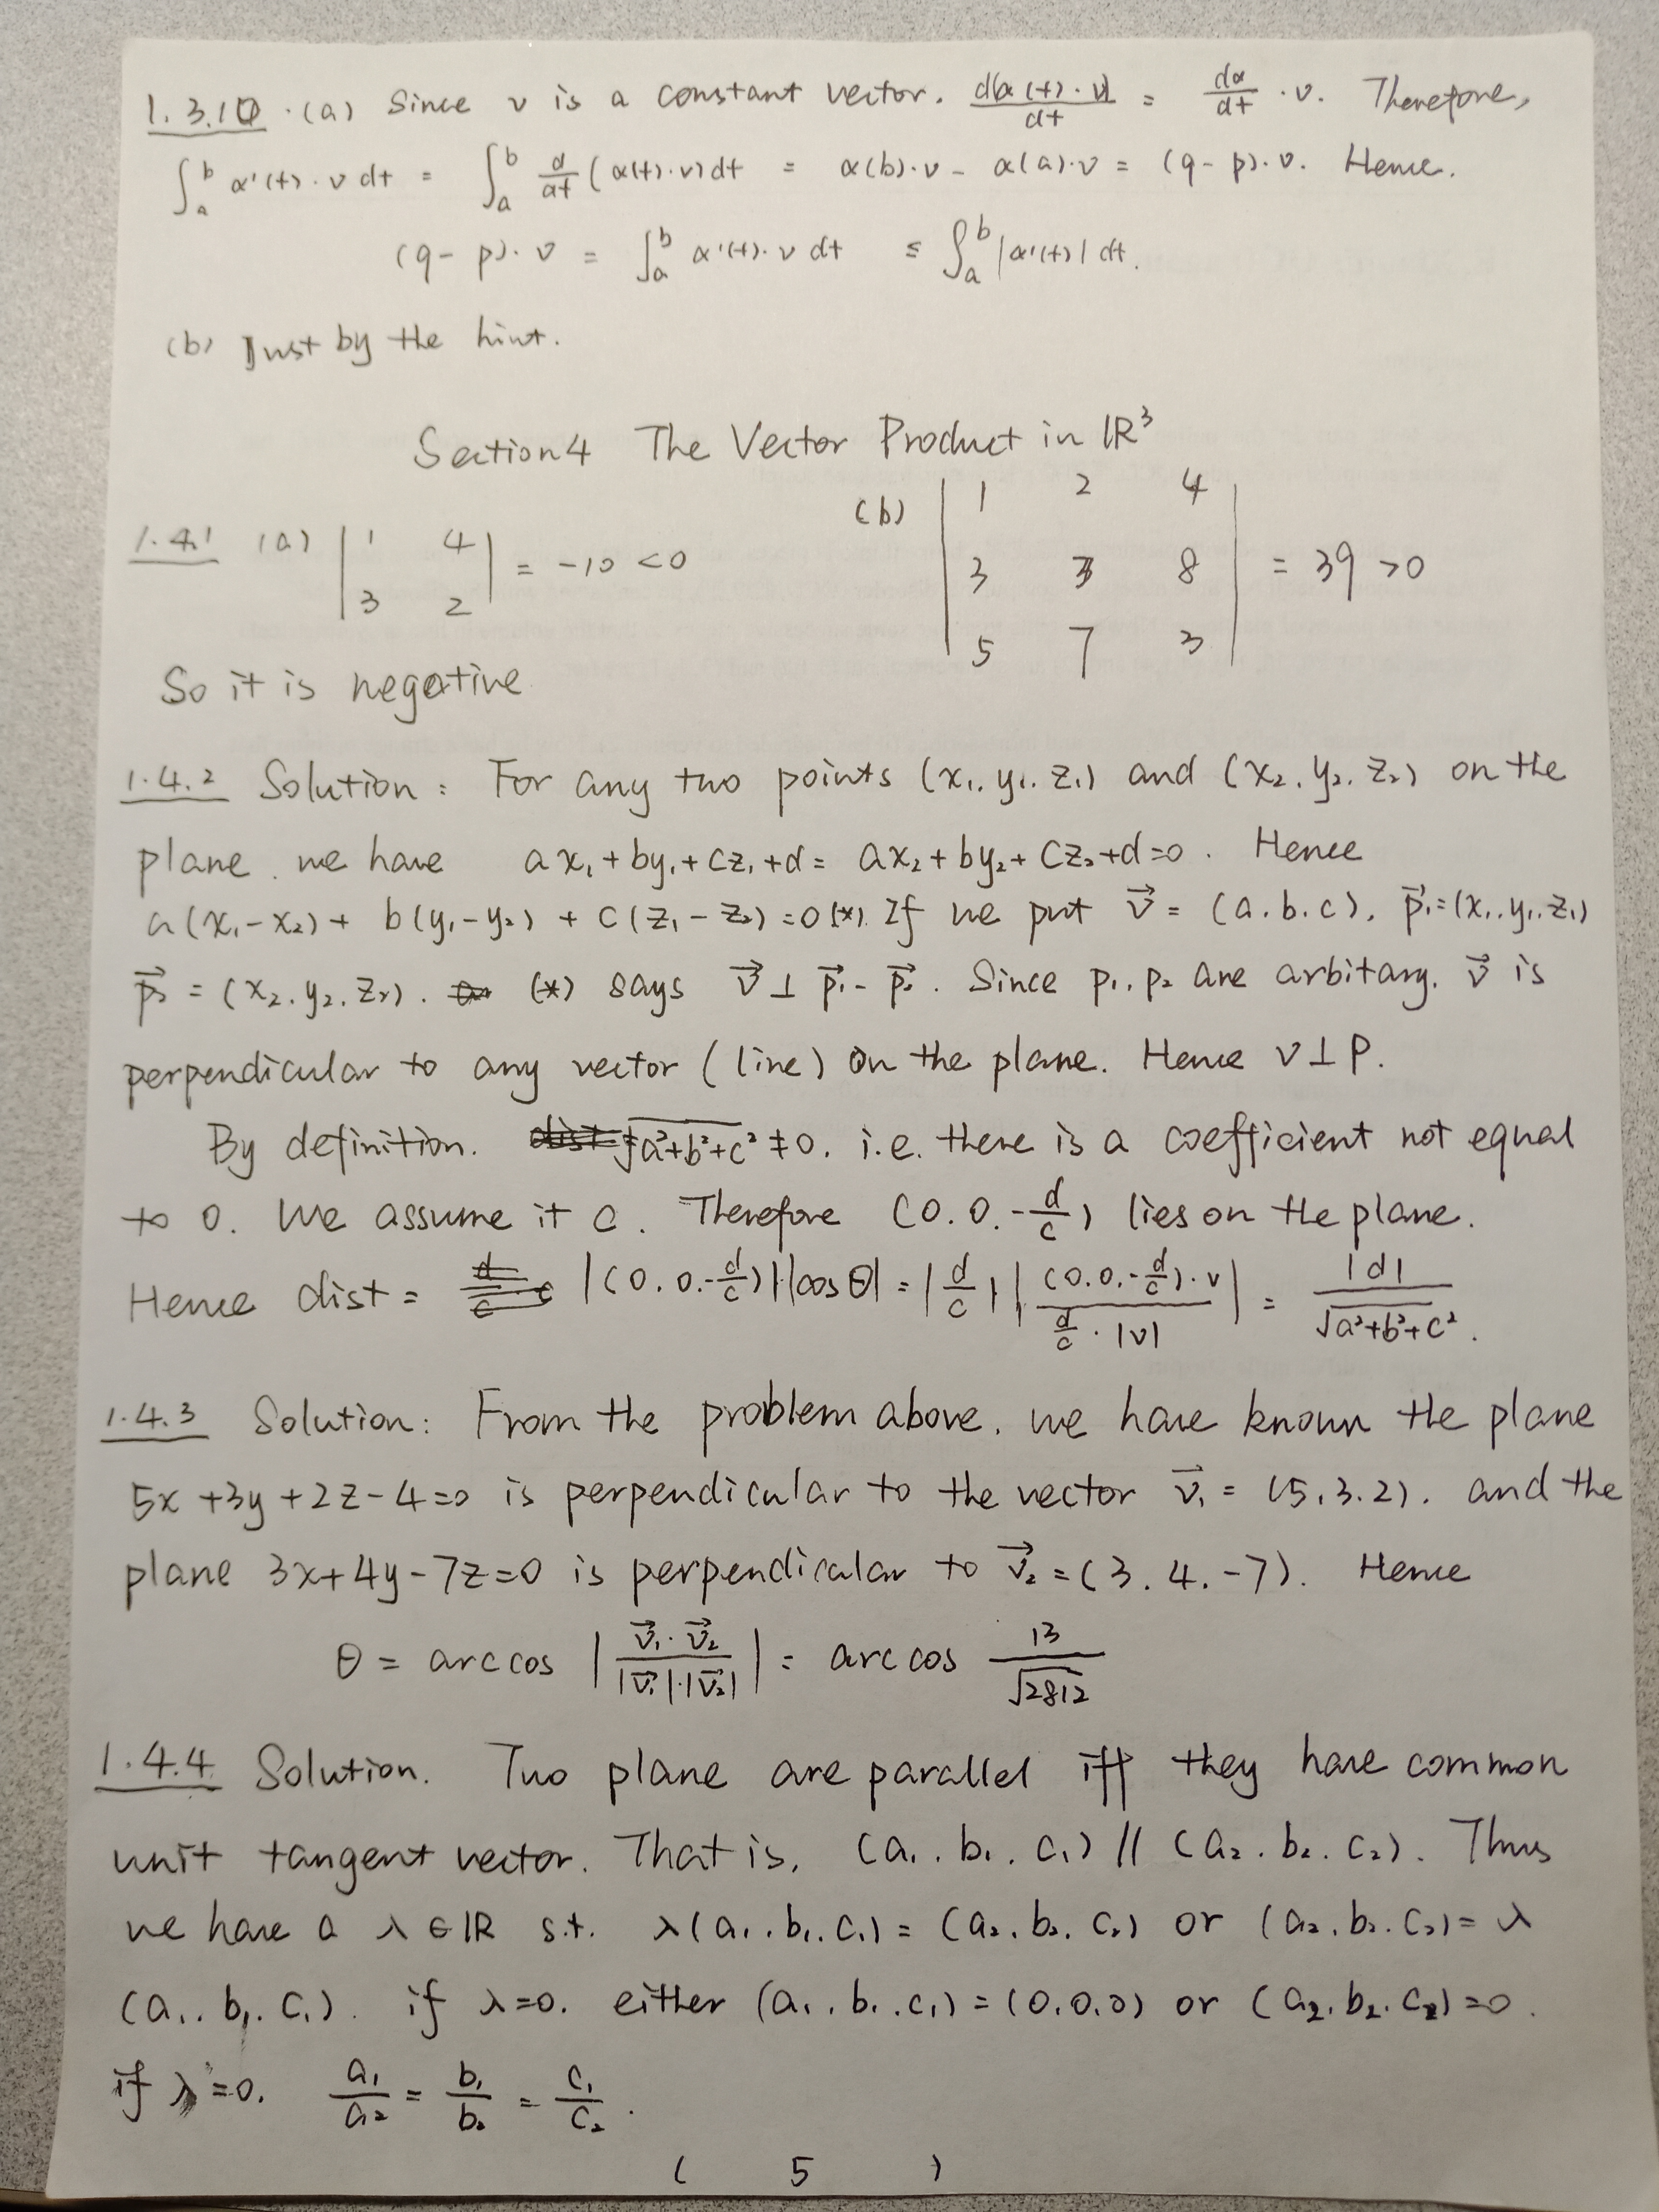 1.3.10. (a) Since v is a constant vector. d(α(t)·v)/dt = dα/dt · v. Therefore,
∫_a^b α'(t)·v dt = ∫_a^b d/dt (α(t)·v) dt = α(b)·v - α(a)·v = (q-p)·v. Hence.
(q-p)·v = ∫_a^b α'(t)·v dt ≤ ∫_a^b |α'(t)| dt.
(b) Just by the hint.
Section 4 The Vector Product in ℝ³
1.4.1 (a) | 1 4 | = -10 < 0
| 3 2 |
So it is negative
(b) | 1 2 4 |
| 3 3 8 | = 39 > 0
| 5 7 3 |
1.4.2 Solution: For any two points (x₁, y₁, z₁) and (x₂, y₂, z₂) on the
plane. we have ax₁+by₁+cz₁+d = ax₂+by₂+cz₂+d=0. Hence
a(x₁-x₂) + b(y₁-y₂) + c(z₁-z₂) =0 (*). If we put v⃗ = (a.b.c), p⃗₁=(x₁.y₁.z₁)
p⃗₂ = (x₂.y₂.z₂). (*) says v⃗ ⊥ p⃗₁ - p⃗₂. Since p₁, p₂ are arbitary. v⃗ is
perpendicular to any vector (line) on the plane. Hence v⊥P.
By definition. √(a²+b²+c²) ≠0. i.e. there is a coefficient not equal
to 0. We assume it c. Therefore (0.0.-d/c) lies on the plane.
Hence dist = |(0.0.-d/c)|·|cosθ| = |d/c| | (0.0.-d/c)·v / (d/c · |v|) | = |d| / √(a²+b²+c²).
1.4.3 Solution: From the problem above. we have known the plane
5x+3y+2z-4=0 is perpendicular to the vector v⃗₁ = (5.3.2). and the
plane 3x+4y-7z=0 is perpendicular to v⃗₂=(3.4.-7). Hence
θ = arc cos | v⃗₁·v⃗₂ / |v⃗₁|·|v⃗₂| | = arc cos 13/√2812
1.4.4 Solution. Two plane are parallel iff they have common
unit tangent vector. That is, (a₁.b₁.c₁) // (a₂.b₂.c₂). Thus
we have a λ∈ℝ s.t. λ(a₁.b₁.c₁) = (a₂.b₂.c₂) or (a₂.b₂.c₂)=λ
(a₁.b₁.c₁). if λ=0. either (a₁.b₁.c₁)=(0.0.0) or (a₂.b₂.c₂)=0.
if λ=0. a₁/a₂ = b₁/b₂ = c₁/c₂.
( 5 )